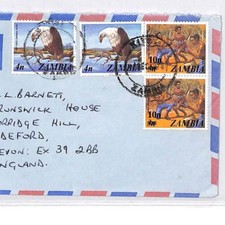 4n ZAMBIA
4n ZAMBIA
10n
ZAMBIA
10n
ZAMBIA
L. BARNETT,
RUNSWICK HOUSE
ORRIDGE HILL,
DEFORD,
EVON: EX 39 2BB
NGLAND.